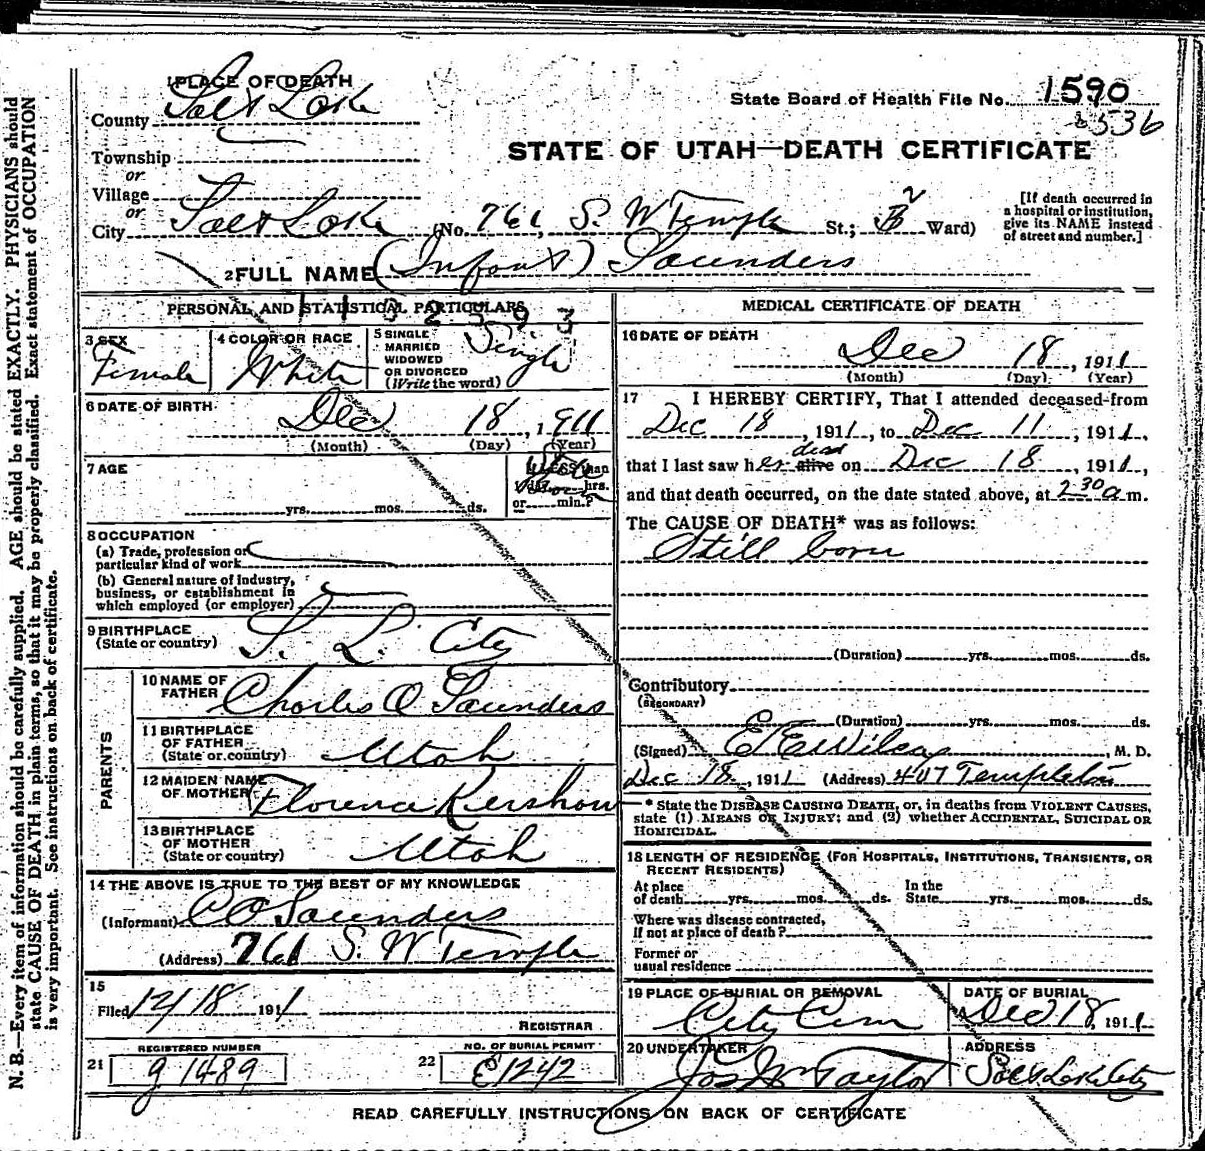 N. B.—Every item of information should be carefully supplied. AGE should be stated EXACTLY. PHYSICIANS should
state CAUSE OF DEATH in plain terms, so that it may be properly classified. Exact statement of OCCUPATION
is very important. See instructions on back of certificate.
1 PLACE OF DEATH
County Salt Lake
State Board of Health File No. 1590
536
STATE OF UTAH—DEATH CERTIFICATE
Township
or
Village
or
City Salt Lake (No. 761, S. W Temple St.; Ward)
[If death occurred in
a hospital or institution,
give its NAME instead
of street and number.]
2 FULL NAME (Infant) Saunders
PERSONAL AND STATISTICAL PARTICULARS
3 SEX
Female
4 COLOR OR RACE
White
5 SINGLE
MARRIED
WIDOWED
OR DIVORCED
(Write the word)
Single
6 DATE OF BIRTH
Dec 18, 1911
(Month) (Day) (Year)
7 AGE
yrs. mos. ds.
If LESS than
1 day hrs.
or min.?
8 OCCUPATION
(a) Trade, profession or
particular kind of work
(b) General nature of industry,
business, or establishment in
which employed (or employer)
9 BIRTHPLACE
(State or country)
S. L. City
PARENTS
10 NAME OF
FATHER
Charles O Saunders
11 BIRTHPLACE
OF FATHER
(State or country)
Utah
12 MAIDEN NAME
OF MOTHER
Florence Kershaw
13 BIRTHPLACE
OF MOTHER
(State or country)
Utah
14 THE ABOVE IS TRUE TO THE BEST OF MY KNOWLEDGE
(Informant) C O Saunders
(Address) 761 S. W Temple
15
Filed 12/18 1911
REGISTRAR
REGISTERED NUMBER
21 g 1489
NO. OF BURIAL PERMIT
22 E1242
MEDICAL CERTIFICATE OF DEATH
16 DATE OF DEATH
Dec 18, 1911
(Month) (Day) (Year)
17 I HEREBY CERTIFY, That I attended deceased from
Dec 18, 1911, to Dec 11, 1911,
dead
that I last saw her alive on Dec 18, 1911,
and that death occurred, on the date stated above, at 2 30 a m.
The CAUSE OF DEATH* was as follows:
Still born
(Duration) yrs. mos. ds.
Contributory
(SECONDARY)
(Duration) yrs. mos. ds.
(Signed) E E Wilcox M. D.
Dec 18, 1911 (Address) 407 Templeton
* State the DISEASE CAUSING DEATH, or, in deaths from VIOLENT CAUSES,
state (1) MEANS OF INJURY; and (2) whether ACCIDENTAL, SUICIDAL OR
HOMICIDAL.
18 LENGTH OF RESIDENCE (FOR HOSPITALS, INSTITUTIONS, TRANSIENTS, OR
RECENT RESIDENTS)
At place
of death yrs. mos. ds.
In the
State yrs. mos. ds.
Where was disease contracted,
If not at place of death?
Former or
usual residence
19 PLACE OF BURIAL OR REMOVAL
City Cem
DATE OF BURIAL
Dec 18, 1911
20 UNDERTAKER
Jos Wm Taylor
ADDRESS
Salt Lake City
READ CAREFULLY INSTRUCTIONS ON BACK OF CERTIFICATE